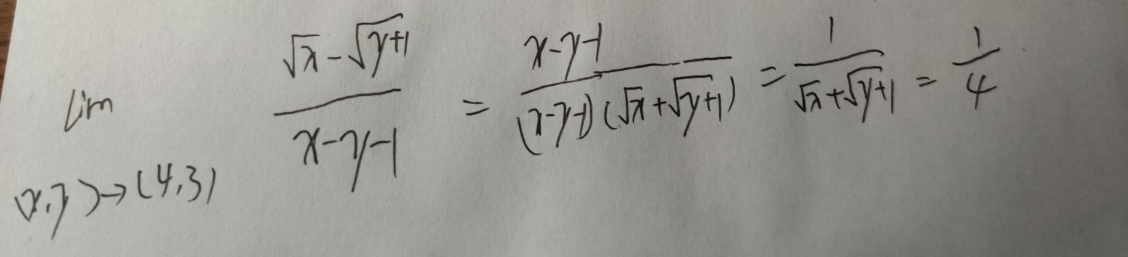 lim (x,y)→(4,3) (√x - √(y+1))/(x-y-1) = (x-y-1)/((x-y-1)(√x+√(y+1))) = 1/(√x+√(y+1)) = 1/4